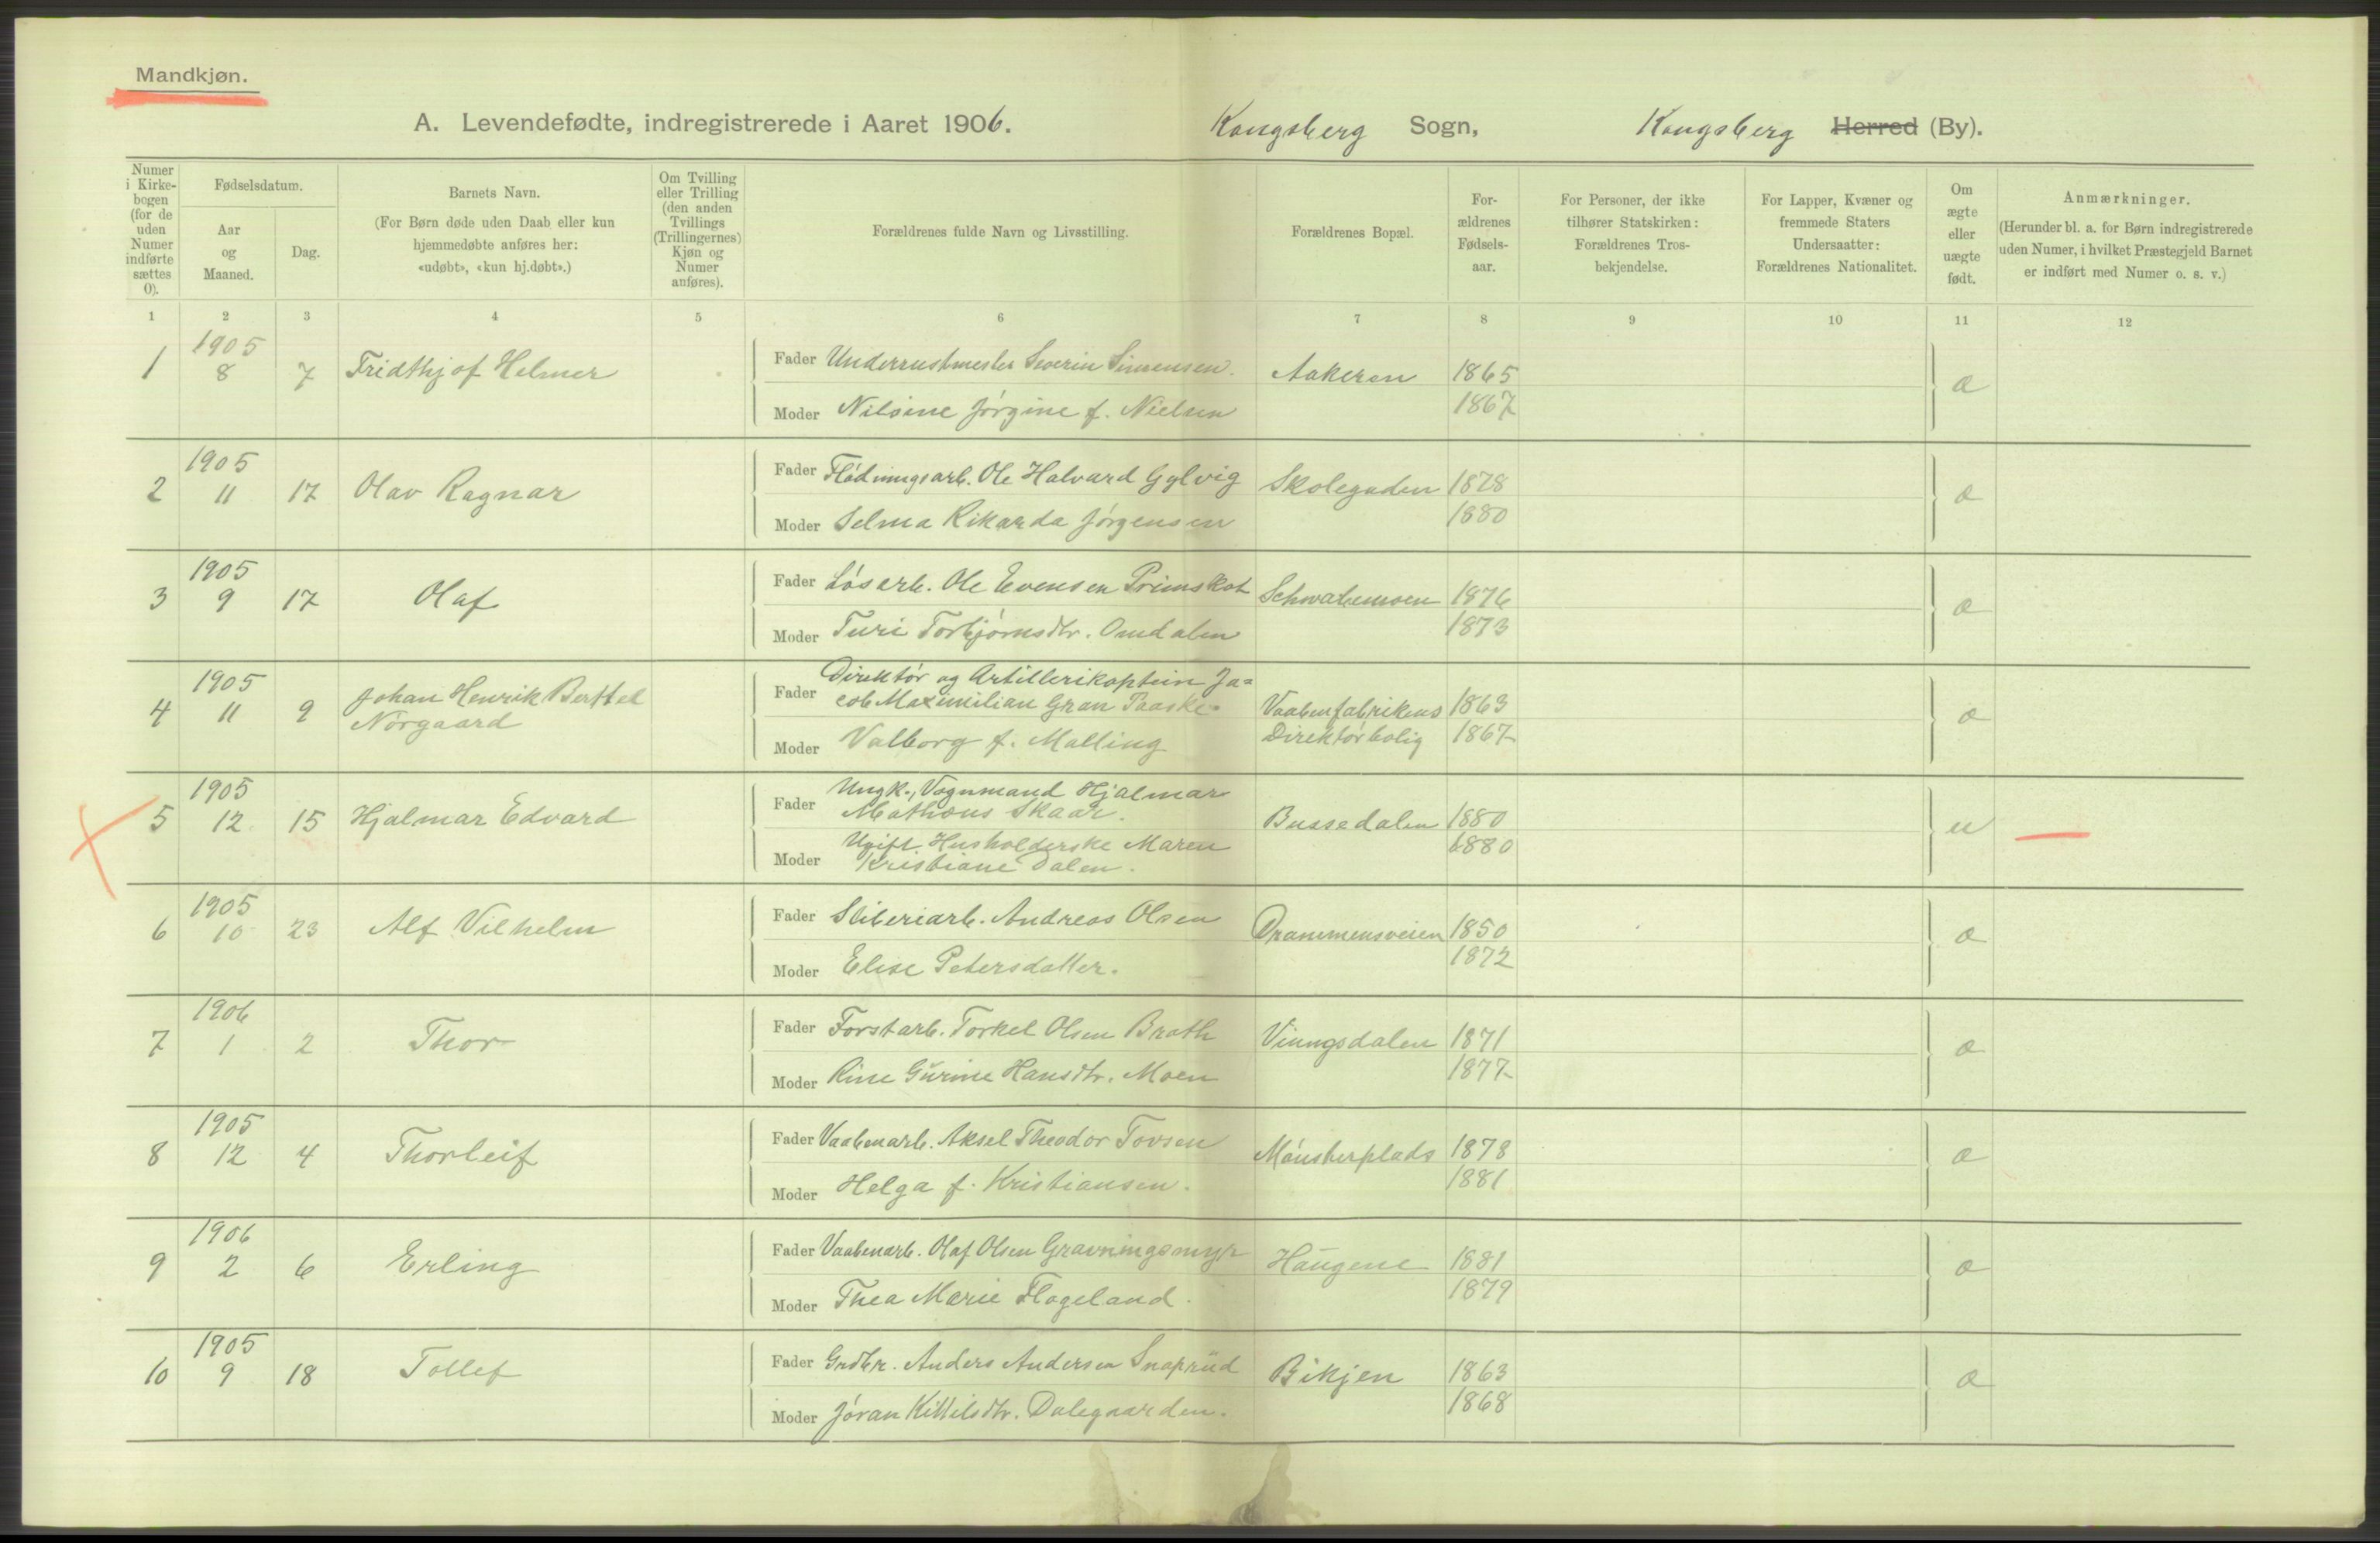 Mandkjøn.
A. Levendefødte, indregistrerede i Aaret 1906. Kongsberg Sogn, Kongsberg Herred (By).
Numer i Kirkebogen (for de uden Numer indførte sættes 0).
Fødselsdatum.
Aar og Maaned.
Dag.
Barnets Navn.
(For Børn døde uden Daab eller kun
hjemmedøbte anføres her:
«udøbt», «kun hj.døbt».)
Om Tvilling
eller Trilling
(den anden
Tvillings
(Trillingernes)
Kjøn og
Numer
anføres).
Forældrenes fulde Navn og Livsstilling.
Forældrenes Bopæl.
For-
ældrenes
Fødsels-
aar.
For Personer, der ikke
tilhører Statskirken:
Forældrenes Tros-
bekjendelse.
For Lapper, Kvæner og
fremmede Staters
Undersaatter:
Forældrenes Nationalitet.
Om
ægte
eller
uægte
født.
Anmærkninger.
(Herunder bl. a. for Børn indregistrerede
uden Numer, i hvilket Præstegjeld Barnet
er indført med Numer o. s. v.)
1 2 3 4 5 6 7 8 9 10 11 12
1905
1 8 7 Fridthjof Helmer Fader Underrustmester Severin Simensen. Aakeren 1865 æ
Moder Nilsine Jørgine f. Nielsen 1867
1905
2 11 17 Olav Ragnar Fader Flødningsarb. Ole Halvard Gylvig Skolegaden 1878 æ
Moder Selma Rikarda Jørgensen 1880
1905
3 9 17 Olaf Fader Løsarb. Ole Evensen Primskot Schwabemoen 1876 æ
Moder Turi Torbjørnsdtr. Omdalen 1873
1905
4 11 9 Johan Henrik Berthel
Nørgaard
Fader Direktør og Artillerikaptein Ja=
cob Maximilian Gran Paaske. Vaabenfabrikens 1863 æ
Moder Valborg f. Malling Direktørbolig 1867
1905
5 12 15 Hjalmar Edvard Fader Ungk., Vognmand Hjalmar
Mathæus Skaar. Bussedalen 1880 u
Moder Ugift Husholderske Maren 1880
Kristiane Dalen.
1905
6 10 23 Alf Vilhelm Fader Sliberiarb. Andreas Olsen Drammensveien 1850 æ
Moder Elise Petersdatter. 1872
1906
7 1 2 Thor Fader Forstarb. Torkel Olsen Brath Vinngsdalen 1871 æ
Moder Rine Gurine Hansdtr. Moen 1877
1905
8 12 4 Thorleif Fader Vaabenarb. Aksel Theodor Tovsen Mønsterplads 1878 æ
Moder Helga f. Kristiansen. 1881
1906
9 2 6 Erling Fader Vaabenarb. Olaf Olsen Gravningsmyr Haugene 1881 æ
Moder Thea Marie Flageland. 1879
1905
10 9 18 Tollef Fader Grdbr. Anders Andersen Snaprud Bikjen 1863 æ
Moder Jøran Kittilsdtr. Dalegaarden. 1868